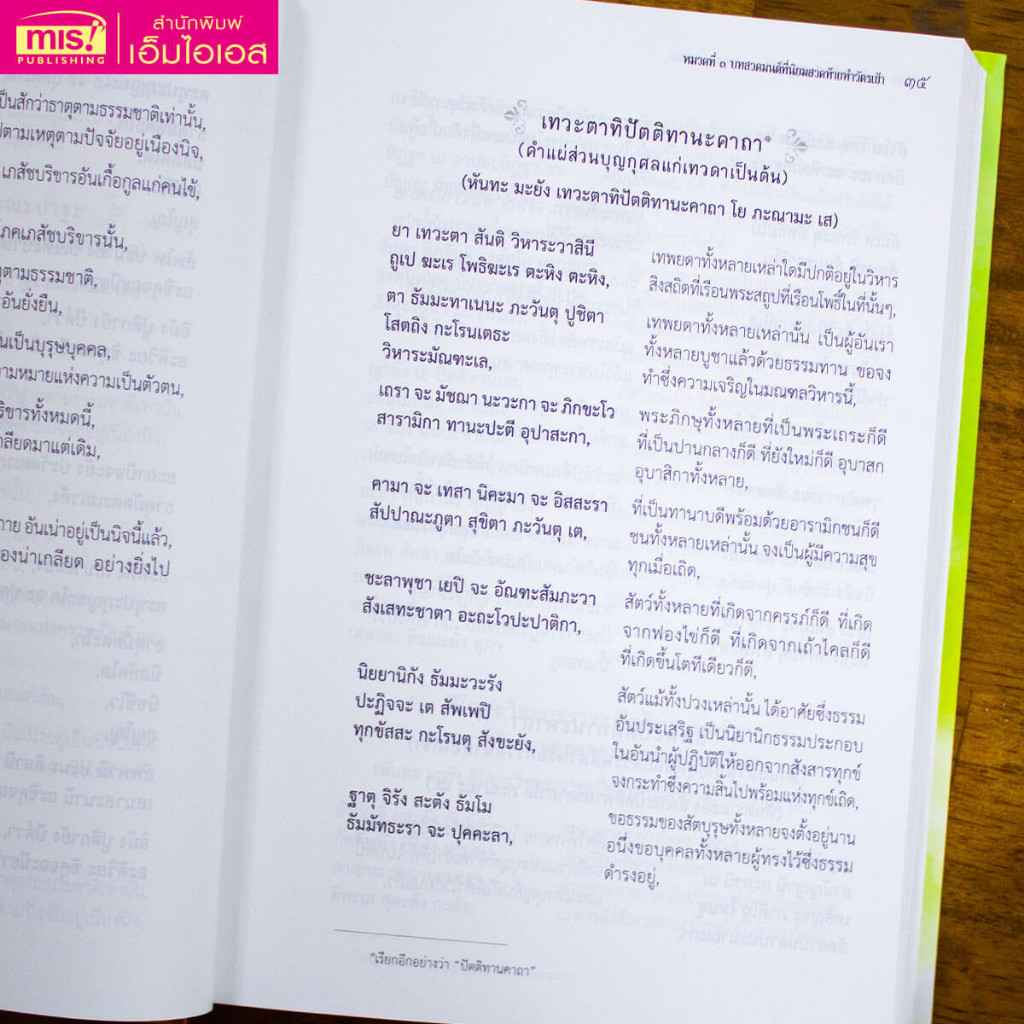 mis!
PUBLISHING
สำนักพิมพ์
เอ็มไอเอส
ป็นสักว่าธาตุตามธรรมชาติเท่านั้น,
ตามเหตุตามปัจจัยอยู่เนืองนิจ,
เภสัชบริขารอันเกื้อกูลแก่คนไข้,
ภคเภสัชบริขารนั้น,
ตุตามธรรมชาติ,
อันยั่งยืน,
นเป็นบุรุษบุคคล,
ามหมายแห่งความเป็นตัวตน,
ริขารทั้งหมดนี้,
กลียดมาแต่เดิม,
กาย อันเน่าอยู่เป็นนิจนี้แล้ว,
องน่าเกลียด อย่างยิ่งไป
หมวดที่ ๑ บทสวดมนต์ที่นิยมสวดท้ายทำวัตรเช้า ๓๕
เทวะตาทิปัตติทานะคาถา*
(คำแผ่ส่วนบุญกุศลแก่เทวดาเป็นต้น)
(หันทะ มะยัง เทวะตาทิปัตติทานะคาถา โย ภะณามะ เส)
ยา เทวะตา สันติ วิหาระวาสินี
ถูเป ฆะเร โพธิฆะเร ตะหิง ตะหิง,
ตา ธัมมะทาเนนะ ภะวันตุ ปูชิตา
โสตถิง กะโรนเตธะ
วิหาระมัณฑะเล,
เถรา จะ มัชฌา นะวะกา จะ ภิกขะโว
สารามิกา ทานะปะตี อุปาสะกา,
คามา จะ เทสา นิคะมา จะ อิสสะรา
สัปปาณะภูตา สุขิตา ภะวันตุ เต,
ชะลาพุชา เยปิ จะ อัณฑะสัมภะวา
สังเสทะชาตา อะถะโวปะปาติกา,
นิยยานิกัง ธัมมะวะรัง
ปะฏิจจะ เต สัพเพปิ
ทุกขัสสะ กะโรนตุ สังขะยัง,
ฐาตุ จิรัง สะตัง ธัมโม
ธัมมัทธะรา จะ ปุคคะลา,
เทพยดาทั้งหลายเหล่าใดมีปกติอยู่ในวิหาร
สิงสถิตที่เรือนพระสถูปที่เรือนโพธิ์ในที่นั้นๆ,
เทพยดาทั้งหลายเหล่านั้น เป็นผู้อันเรา
ทั้งหลายบูชาแล้วด้วยธรรมทาน ขอจง
ทำซึ่งความเจริญในมณฑลวิหารนี้,
พระภิกษุทั้งหลายที่เป็นพระเถระก็ดี
ที่เป็นปานกลางก็ดี ที่ยังใหม่ก็ดี อุบาสก
อุบาสิกาทั้งหลาย,
ที่เป็นทานาบดีพร้อมด้วยอารามิกชนก็ดี
ชนทั้งหลายเหล่านั้น จงเป็นผู้มีความสุข
ทุกเมื่อเถิด,
สัตว์ทั้งหลายที่เกิดจากครรภ์ก็ดี ที่เกิด
จากฟองไข่ก็ดี ที่เกิดจากเถ้าไคลก็ดี
ที่เกิดขึ้นโตทีเดียวก็ดี,
สัตว์แม้ทั้งปวงเหล่านั้น ได้อาศัยซึ่งธรรม
อันประเสริฐ เป็นนิยานิกธรรมประกอบ
ในอันนำผู้ปฏิบัติให้ออกจากสังสารทุกข์
จงกระทำซึ่งความสิ้นไปพร้อมแห่งทุกข์เถิด,
ขอธรรมของสัตบุรุษทั้งหลายจงตั้งอยู่นาน
อนึ่งขอบุคคลทั้งหลายผู้ทรงไว้ซึ่งธรรม
ดำรงอยู่,
*เรียกอีกอย่างว่า “ปัตติทานคาถา”